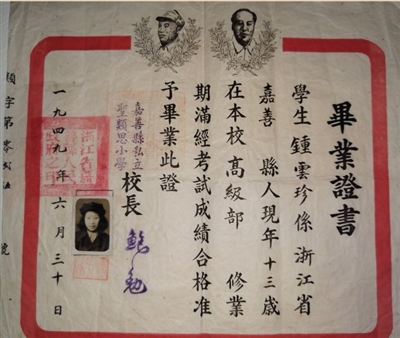 畢業證書
學生鍾雲珍係浙江省
嘉善 縣人現年十三歲
在本校高級部 修業
期滿經考試成績合格准
予畢業此證
嘉善縣私立
聖類思小學
校長
一九四九年六月三十日
類字第 號